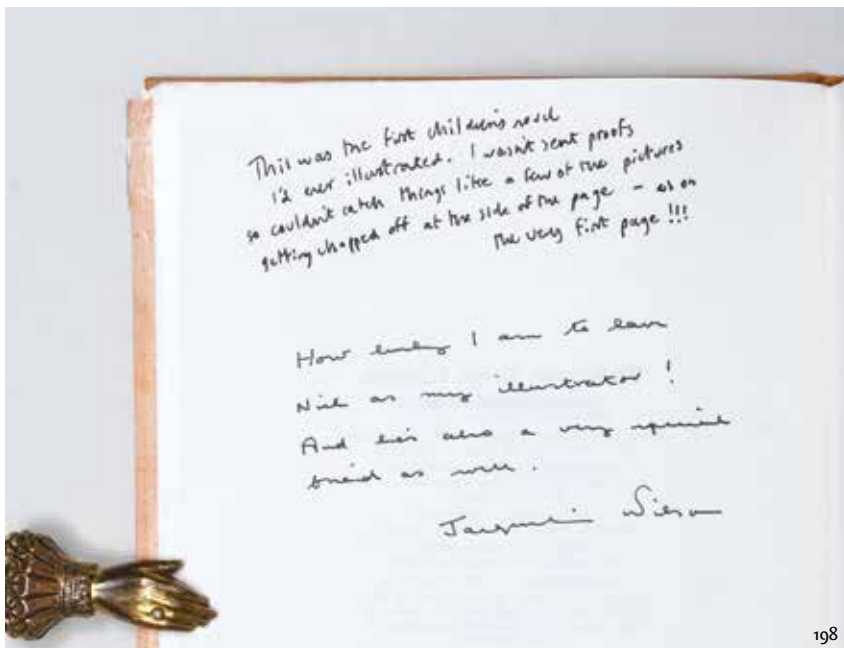 This was the first children's novel
I'd ever illustrated. I wasn't sent proofs
so couldn't catch things like a few of the pictures
getting chopped off at the side of the page – as on
the very first page!!!
How lucky I am to have
Nick as my illustrator!
And he's also a very special
friend as well.
Jacqueline Wilson
198